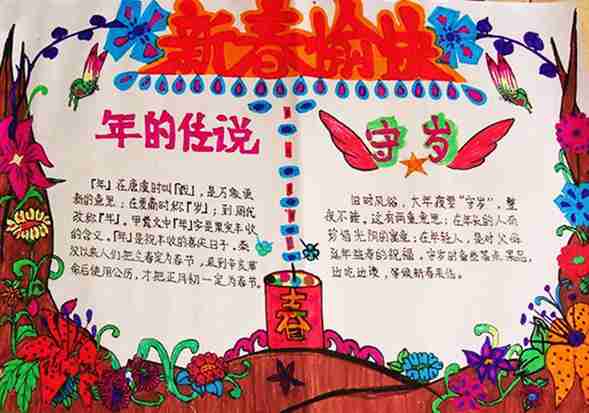 新春愉快
年的传说
守岁
「年」在唐虞时叫「载」，是万象更
新的意思；在夏商时称「岁」；到周代
改称「年」。甲骨文中「年」字是果实丰收
的含义。「年」是祝丰收的喜庆日子。秦
汉以来人们把立春定为春节。直到辛亥革
命后使用公历，才把正月初一定为春节。
旧时风俗，大年夜要“守岁”，整
夜不睡，这有两重意思：在年长的人有
珍惜光阴的寓意；在年轻人，是对父母
延年益寿的祝福。守岁时备些茶点果品，
边吃边谈，等候新春来临。